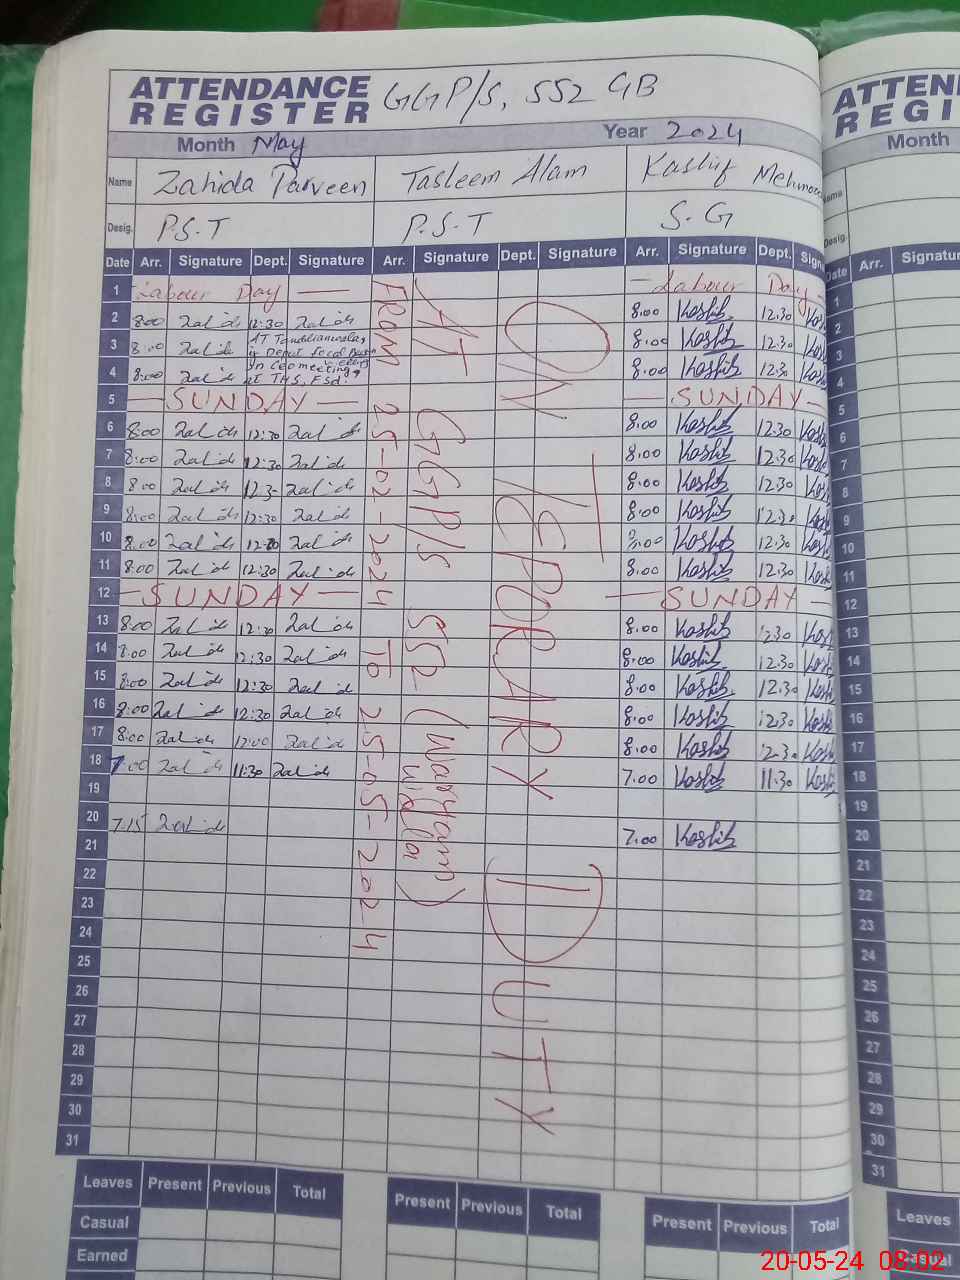 ATTENDANCE REGISTER GGP/S, 552 GB
Month May Year 2024
Name Zahida Parveen Tasleem Alam Kashif
Desig. P.S.T P.S.T S.G
Date Arr. Signature Dept. Signature Arr. Signature Dept. Signature Arr. Signature Dept.
1 Labour Day — — Labour Day —
2 8:00 12:30 8.00 Kashif 12.30
3 8:00 AT 8.00 Kashif 12.30
4 8:00 in CEO meeting at THS, FSd. 8.00 Kashif 12.30
5 — SUNDAY — — SUNDAY —
6 8:00 12:30 8.00 Kashif 12.30
7 8:00 12:30 8.00 Kashif 12.30
8 8:00 12:3 8.00 Kashif 12.30
9 8:00 12:30 8.00 Kashif 12.30
10 8:00 8.00 Kashif 12.30
11 8:00 12:30 8.00 Kashif 12.30
12 — SUNDAY — — SUNDAY —
13 8:00 12:30 8.00 Kashif 12.30
14 8:00 12:30 8.00 Kashif 12.30
15 8:00 12:30 8.00 Kashif 12.30
16 8:00 12:30 8.00 Kashif 12.30
17 8:00 12:00 8.00 Kashif 12.30
18 7:00 11:30 7.00 Kashif 11.30
19
20 7:15 7.00 Kashif
21
22
23
24
25
26
27
28
29
30
31
ON TEPORARY DUTY
AT GGP/S 552 (Waryam wala)
FROM 25-02-2024 TO 25-05-2024
Leaves Present Previous Total Present Previous Total Present Previous Total
Casual
Earned
ATTEN
REGI
Month
Name
Desig.
Date Arr.
1
2
3
4
5
6
7
8
9
10
11
12
13
14
15
16
17
18
19
20
21
22
23
24
25
26
27
28
29
30
31
Leaves
Casual
20-05-24 08:02